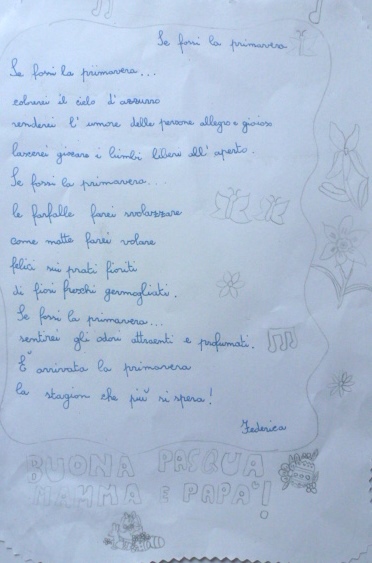 Se fossi la primavera
Se fossi la primavera...
colorerei il cielo d'azzurro
renderei l'umore delle persone allegro e gioioso
lascerei giocare i bimbi liberi all'aperto.
Se fossi la primavera...
le farfalle farei svolazzare
come matte farei volare
felici sui prati fioriti
di fiori freschi germogliati.
Se fossi la primavera...
sentirei gli odori attraenti e profumati.
È arrivata la primavera
la stagion che più si spera!
Federica
BUONA PASQUA
MAMMA E PAPÀ!